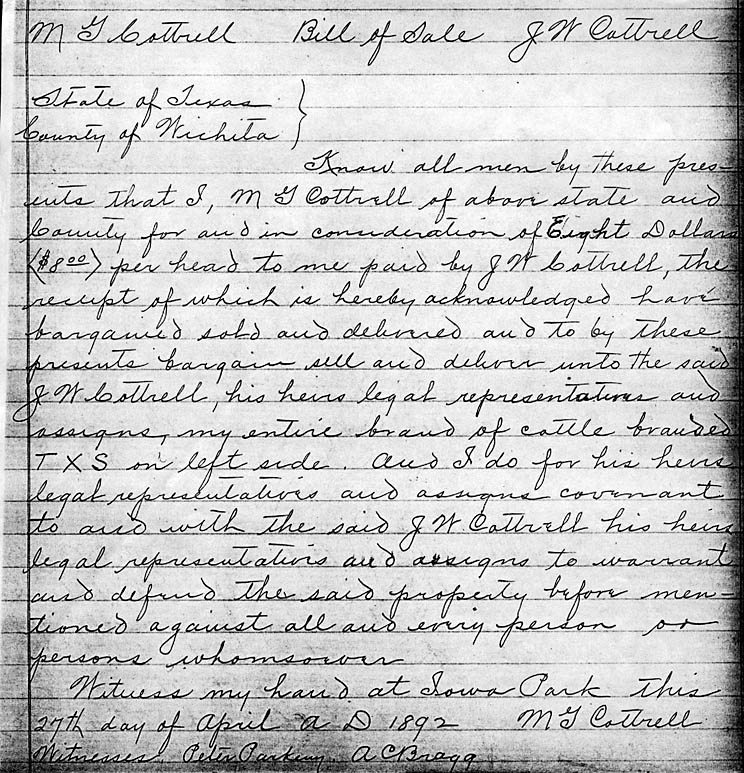 M G Cottrell Bill of Sale J W Cottrell
State of Texas
County of Wichita }
Know all men by these pres-
ents that I, M G Cottrell of above state and
County for and in consideration of Eight Dollars
($8.00) per head to me paid by J W Cottrell, the
receipt of which is hereby acknowledged have
bargained sold and delivered and to by these
presents bargain sell and deliver unto the said
J W Cottrell, his heirs legal representatives and
assigns, my entire brand of cattle branded
T X S on left side. And I do for his heirs
legal representatives and assigns covenant
to and with the said J W Cottrell his heirs
legal representatives and assigns to warrant
and defend the said property before men-
tioned against all and every person or
persons whomsoever
Witness my hand at Iowa Park this
27th day of April A D 1892 M G Cottrell
Witnesses Peter A C Bragg